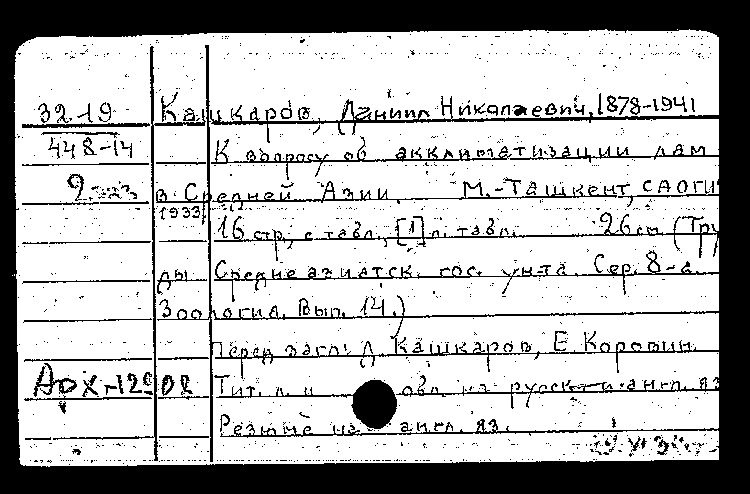 32-19 Кашкаров, Даниил Николаевич, 1878-1941
448-14 К вопросу об акклиматизации лам
в Средней Азии. М.-Ташкент, САОГИ
1933,
16 стр., с табл., [1] л. табл. 26 см (Тру
ды Среднеазиатск. гос. ун-та. Сер. 8-а.
Зоология. Вып. 14.)
Перед загл: Д. Кашкаров, Е. Коровин.
Арх-12908 Тит. л. и обл. на русск. и англ. яз
Резюме на англ. яз.